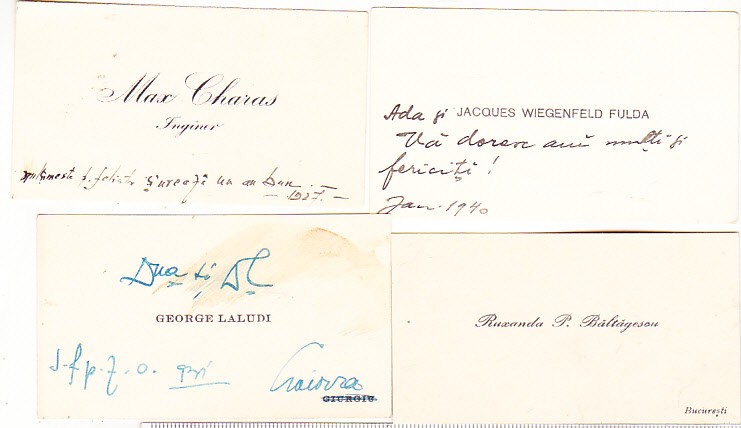 Max Charas
Inginer
mulțumește p. felicit. și urează un an bun.
— 1927. —
Ada și JACQUES WIEGENFELD FULDA
Vă doresc ani mulți și
fericiți!
Jan. 1940
Dna și Dl
GEORGE LALUDI
Craiova
GIURGIU
Ruxanda P. Băltăgescu
București